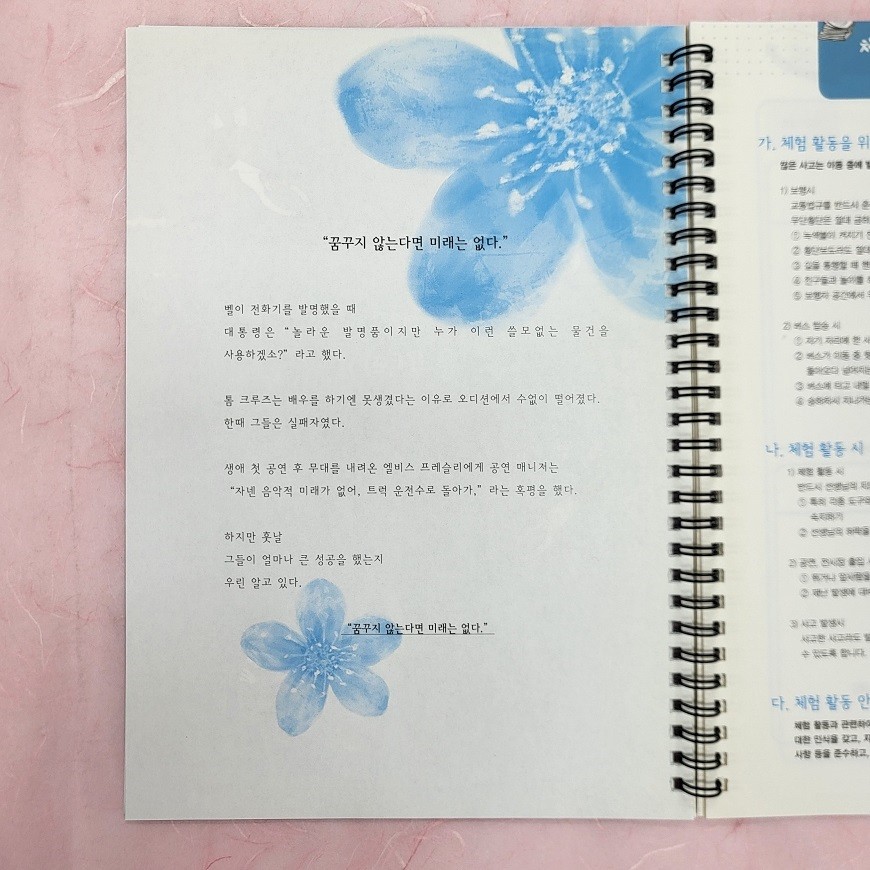 “꿈꾸지 않는다면 미래는 없다.”
벨이 전화기를 발명했을 때
대통령은 “놀라운 발명품이지만 누가 이런 쓸모없는 물건을
사용하겠소?” 라고 했다.
톰 크루즈는 배우를 하기엔 못생겼다는 이유로 오디션에서 수없이 떨어졌다.
한때 그들은 실패자였다.
생애 첫 공연 후 무대를 내려온 엘비스 프레슬리에게 공연 매니저는
“자넨 음악적 미래가 없어, 트럭 운전수로 돌아가,” 라는 혹평을 했다.
하지만 훗날
그들이 얼마나 큰 성공을 했는지
우린 알고 있다.
“꿈꾸지 않는다면 미래는 없다.”
가. 체험 활동을 위
많은 사고는 이동 중에
1) 보행시
교통법규를 반드시 준
무단횡단은 절대 금
① 녹색불이 켜지기
② 횡단보도라도 절대
③ 길을 통행할 때
④ 친구들과 놀이를
⑤ 보행자 공간에서
2) 버스 탑승 시
① 자기 자리에 한
② 버스가 이동 중
돌아오다 넘어지는
③ 버스에 타고 내릴
④ 승하차시 지나가는
나. 체험 활동 시
1) 체험 활동 시
반드시 선생님의 지
① 특히 각종 도구
숙지하기
② 선생님의 허락을
2) 공연, 전시장 출입
① 뛰거나 앞사람을
② 재난 발생에 대비
3) 사고 발생시
사고란 사고라도
수 있도록 합니다.
다. 체험 활동 안
체험 활동과 관련하여
대한 인식을 갖고,
사항 등을 준수하고,